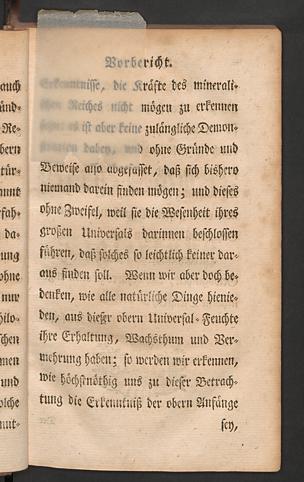 Vorbericht.
Erkenntnisse, die Kräfte des minerali-
schen Reiches nicht mögen zu erkennen
es ist aber keine zulängliche Demon-
stration dabey, und ohne Gründe und
Beweise also abgefasset, daß sich bishero
niemand darein finden mögen; und dieses
ohne Zweifel, weil sie die Wesenheit ihres
großen Universals darinnen beschlossen
führen, daß solches so leichtlich keiner dar-
aus finden soll. Wenn wir aber doch be-
denken, wie alle natürliche Dinge hienie-
den, aus dieser obern Universal-Feuchte
ihre Erhaltung, Wachsthum und Ver-
mehrung haben; so werden wir erkennen,
wie höchstnöthig uns zu dieser Betrach-
tung die Erkenntniß der obern Anfänge
sey,
auch
ünd-
Re-
bern
tür-
annt
rfah-
da-
ung
ohne
nur
hilo-
schen
men
und
olche
nnt-